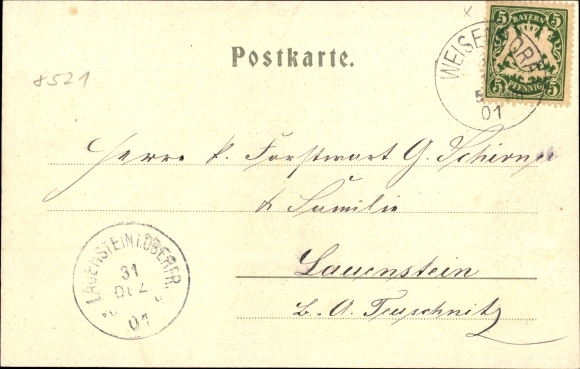 5 5
BAYERN
PFENNIG
5 5
WEISENDORF
5
01
Postkarte.
8521
Herrn k. Forstwart G. Schirmer
& Familie
Lauenstein
B. A. Teuschnitz
LAUENSTEIN I. OBERFR.
31
DEZ
01